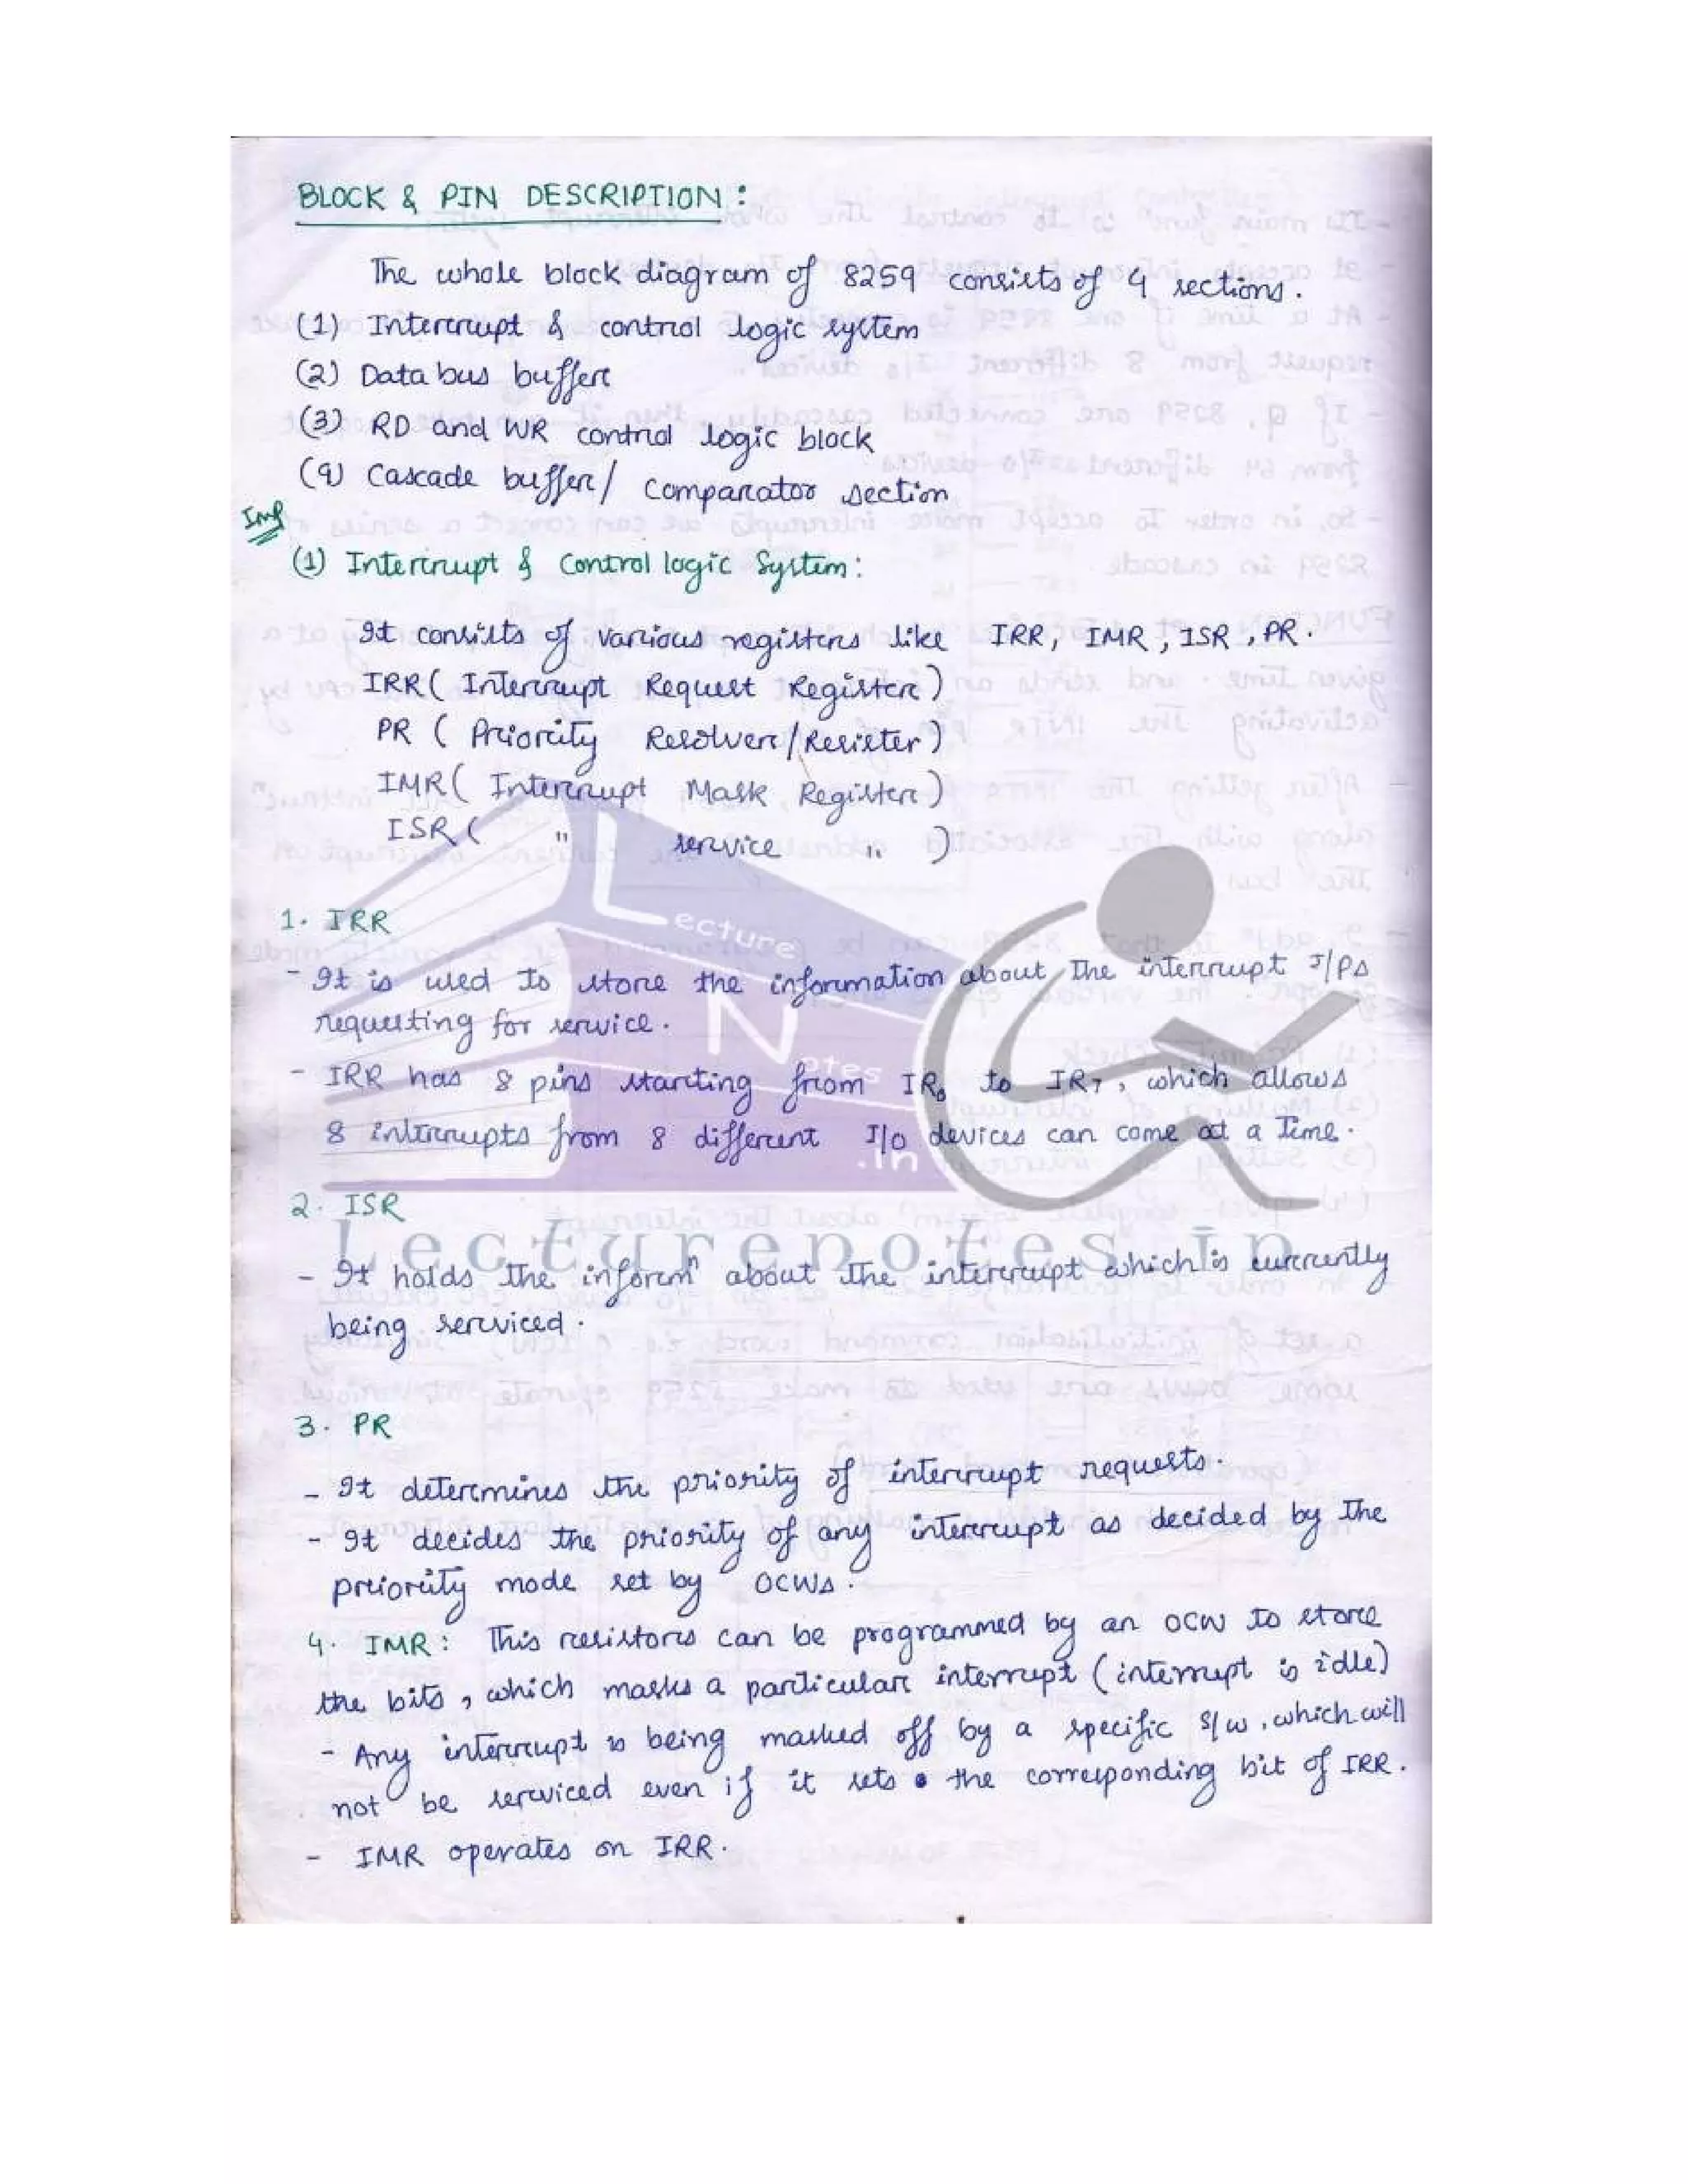 BLOCK & PIN DESCRIPTION :
The whole block diagram of 8259 consists of 4 sections.
(1) Interrupt & control logic system
(2) Data bus buffer
(3) RD and WR control logic block
(4) Cascade buffer/ comparator section
Imp
(1) Interrupt & Control logic System:
It consists of various registers like IRR, IMR, ISR, PR.
IRR( Interrupt Request Register)
PR ( Priority Resolver/Resister)
IMR( Interrupt Mask Register)
ISR ( " service " )
1. IRR
- It is used to store the information about the interrupt I/Ps
requesting for service.
- IRR has 8 pins starting from IR0 to IR7, which allows
8 interrupts from 8 different I/O devices can come at a time.
2. ISR
- It holds the informⁿ about the interrupt which is currently
being serviced.
3. PR
- It determines the priority of interrupt requests.
- It decides the priority of any interrupt as decided by the
priority mode set by OCWs.
4. IMR: This resistors can be programmed by an OCW to store
the bits, which masks a particular interrupt (interrupt is idle)
- Any interrupt is being masked off by a specific S/w, which will
not be serviced even if it sets the corresponding bit of IRR.
- IMR operates on IRR.
Lecture
Notes
.in
Lecturenotes.in